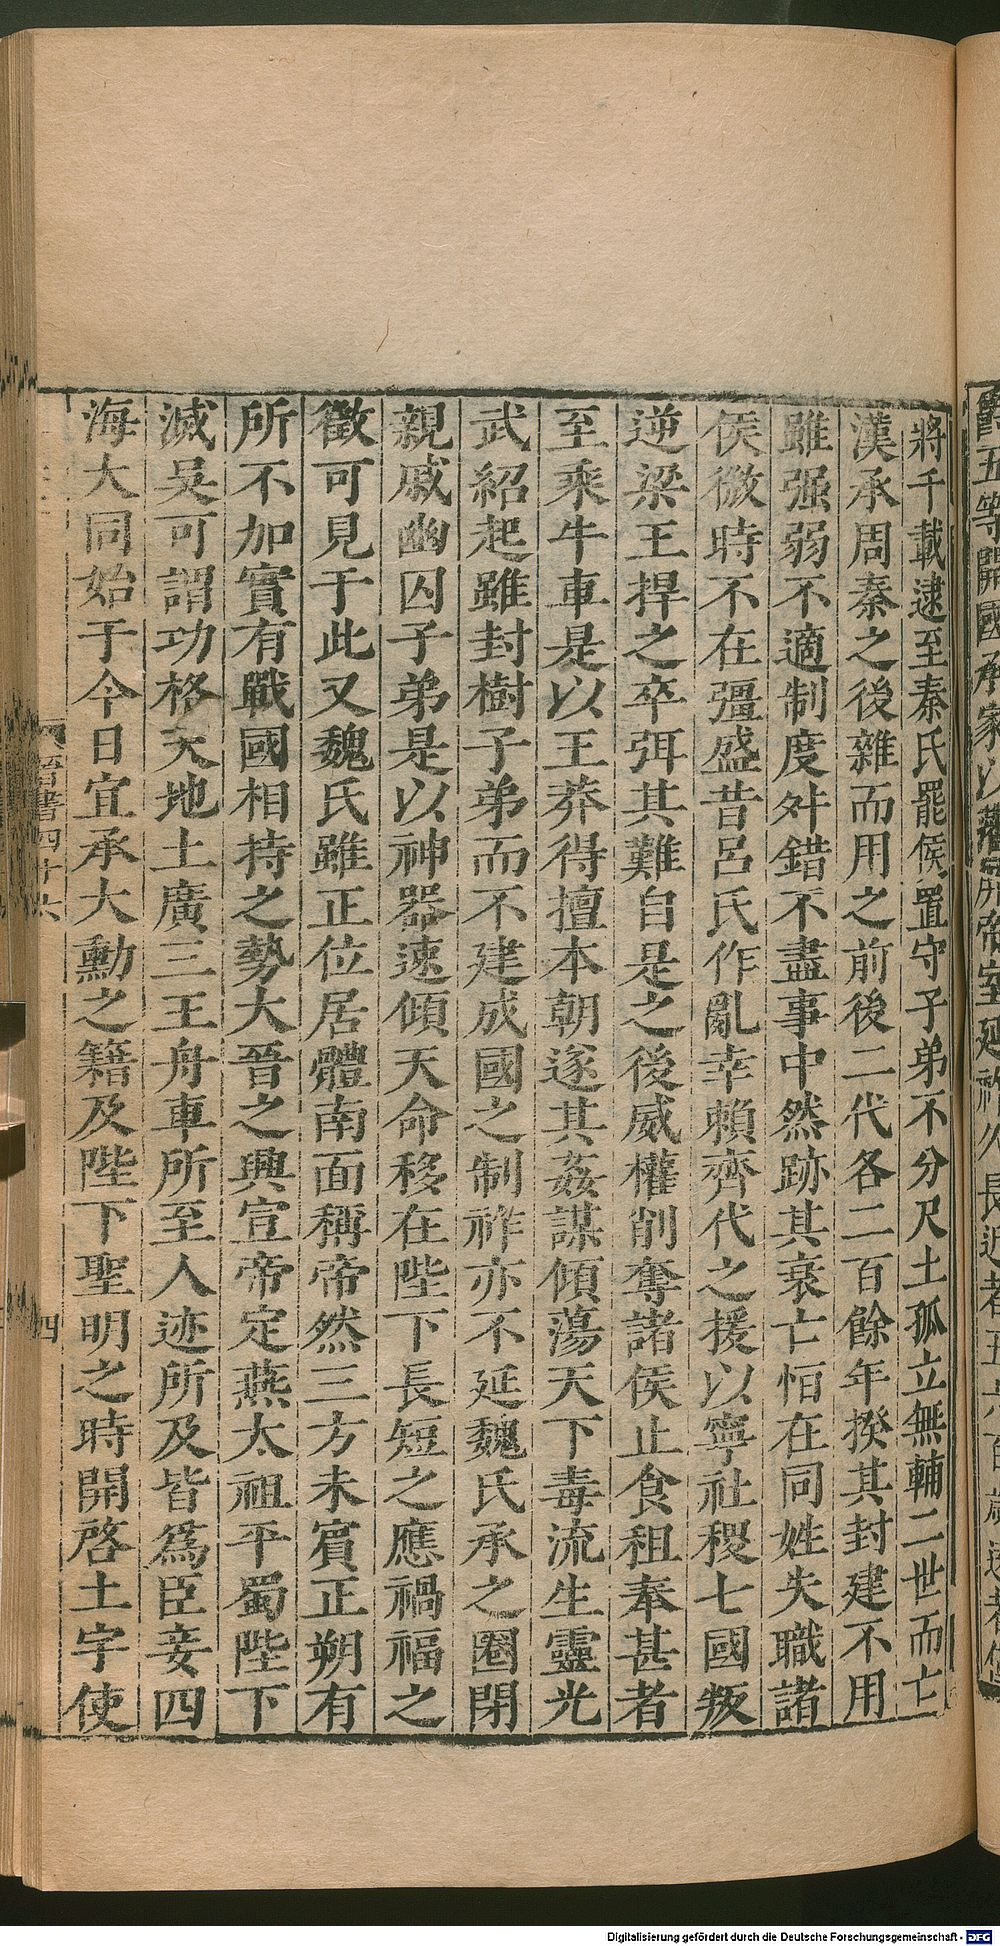 爵五等開國承家以藩屏帝室延祚久長近者五六百歲遠者僅
將千載逮至秦氏罷侯置守子弟不分尺土孤立無輔二世而亡
漢承周秦之後雜而用之前後二代各二百餘年揆其封建不用
雖强弱不適制度舛錯不盡事中然跡其衰亡恒在同姓失職諸
侯微時不在彊盛昔呂氏作亂幸賴齊代之援以寧社稷七國叛
逆梁王捍之卒弭其難自是之後威權削奪諸侯止食租奉甚者
至乘牛車是以王莽得擅本朝遂其姦謀傾蕩天下毒流生靈光
武紹起雖封樹子弟而不建成國之制祚亦不延魏氏承之圈閉
親戚幽囚子弟是以神器速傾天命移在陛下長短之應禍福之
徵可見于此又魏氏雖正位居體南面稱帝然三方未賓正朔有
所不加實有戰國相持之勢大晉之興宣帝定燕太祖平蜀陛下
滅吳可謂功格天地土廣三王舟車所至人迹所及皆爲臣妾四
海大同始于今日宜承大勳之籍及陛下聖明之時開啓土宇使
晉書四十六
四
Digitalisierung gefördert durch die Deutsche Forschungsgemeinschaft - DFG